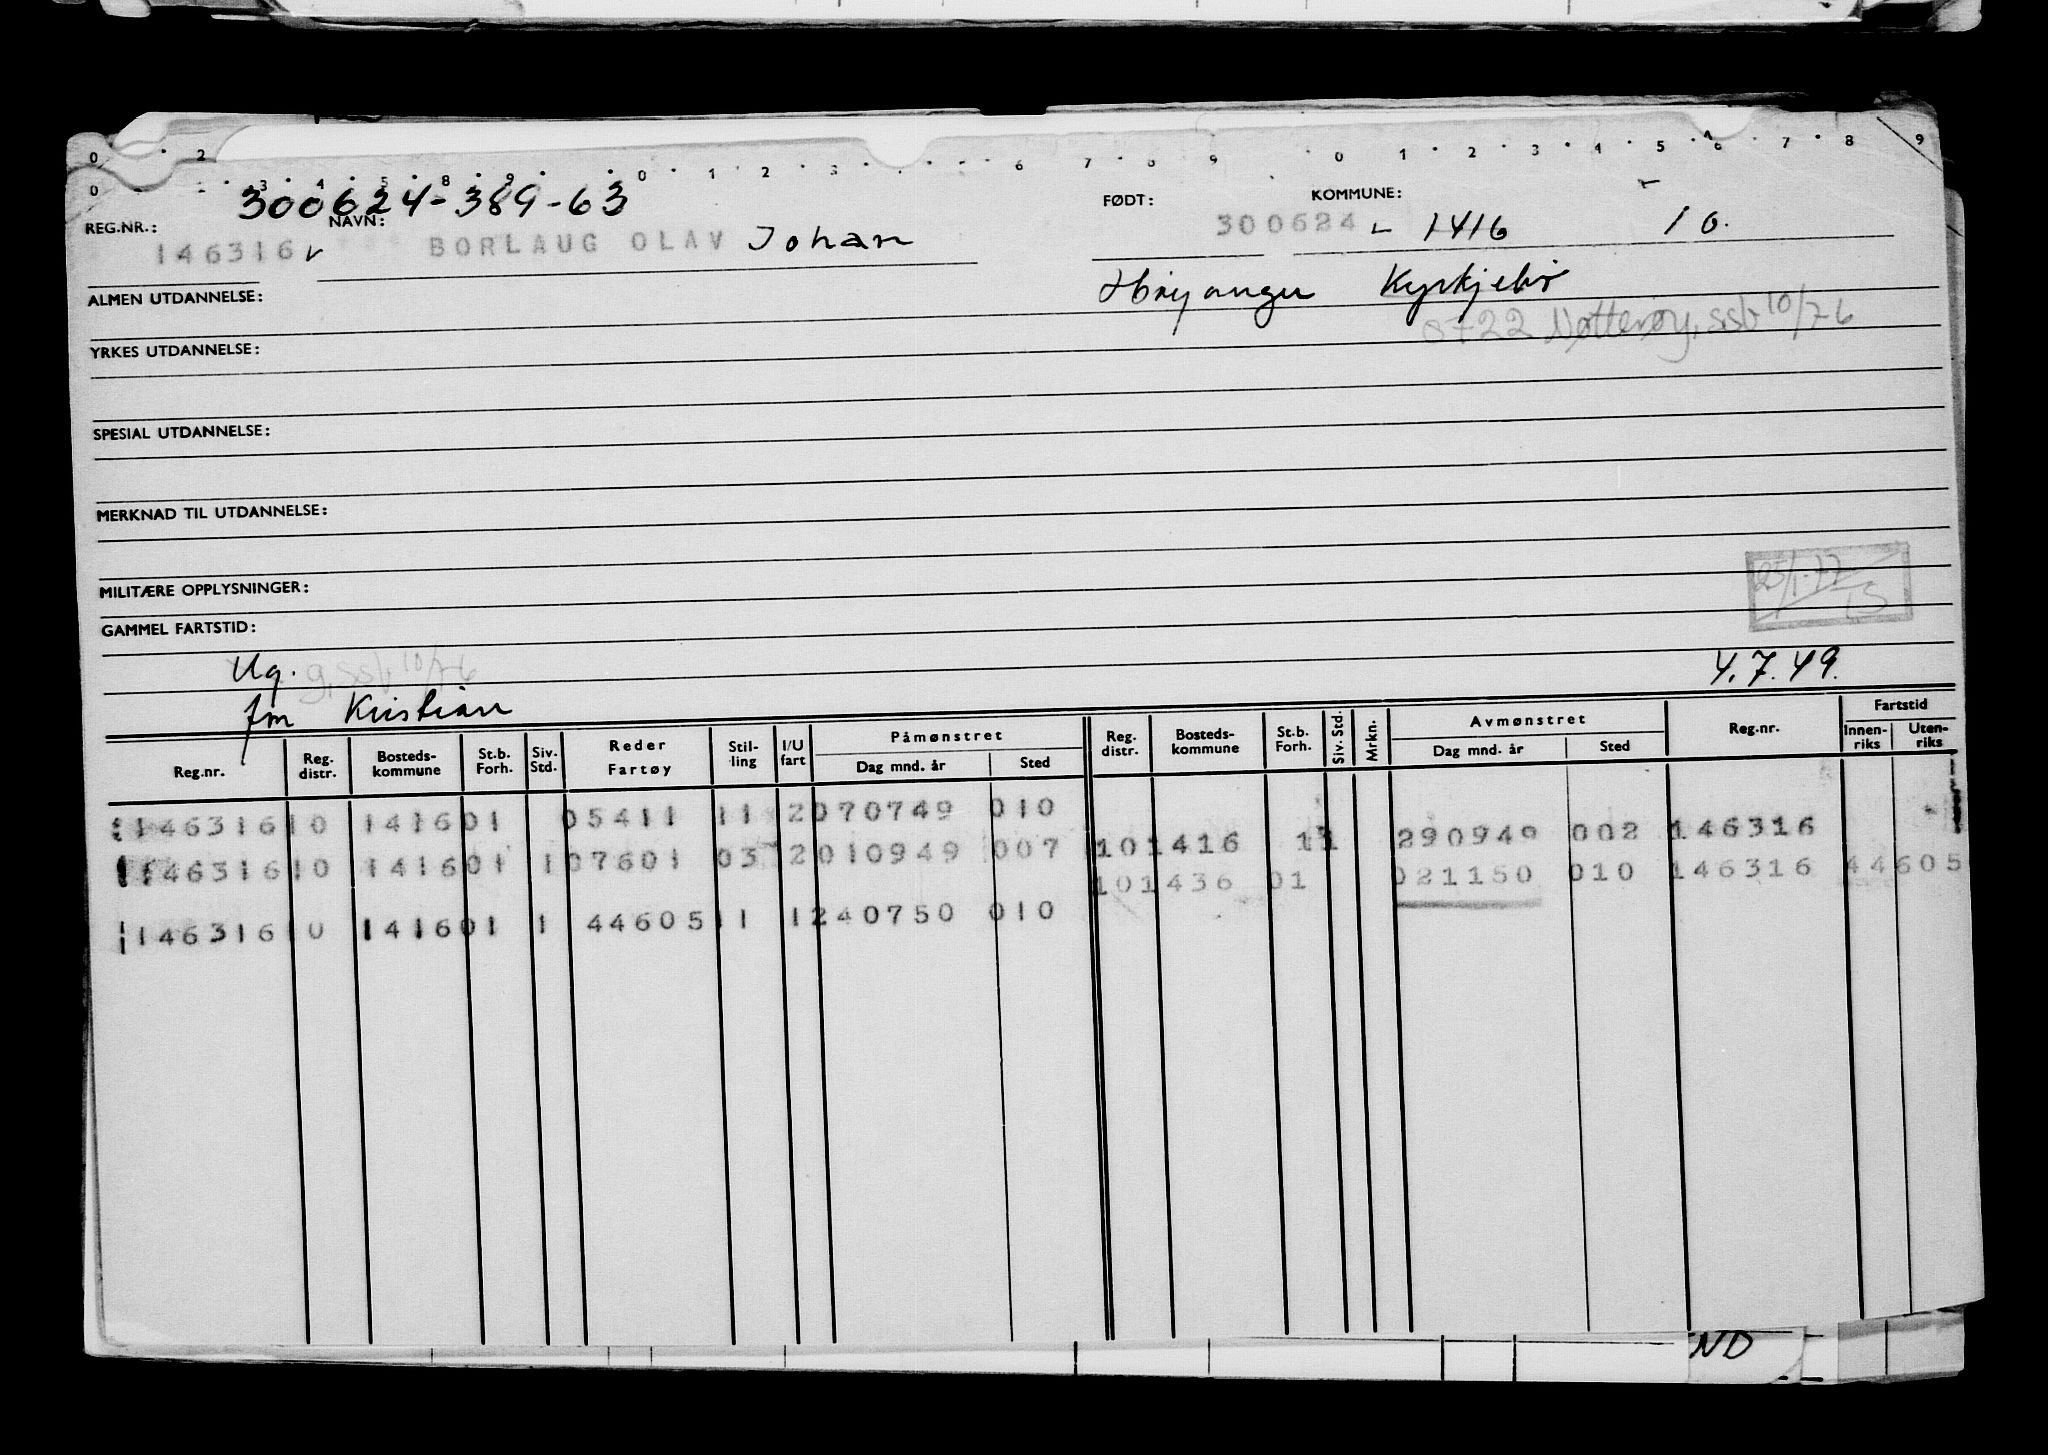 300624-389-63
REG.NR.: NAVN: FØDT: KOMMUNE:
146316 v BORLAUG OLAV Johan 300624 - 1416 10.
ALMEN UTDANNELSE: Høyanger Kyrkjebø
0722 Nøtterøy, ssb 10/76
YRKES UTDANNELSE:
SPESIAL UTDANNELSE:
MERKNAD TIL UTDANNELSE:
MILITÆRE OPPLYSNINGER:
25/1-77
GAMMEL FARTSTID:
Ug. g, ssb 10/76 4.7.49.
fm Kristian
Reg.nr. Reg. distr. Bosteds-kommune St.b. Forh. Siv. Std. Reder Fartøy Stil-ling I/U fart Påmønstret Dag mnd. år Sted Reg. distr. Bosteds-kommune St.b. Forh. Siv. Std. Mrkn. Avmønstret Dag mnd. år Sted Reg.nr. Fartstid Innen-riks Uten-riks
146316 10 1416 01 05411 11 2 070749 010
146316 10 1416 01 1 07601 03 2 010949 007 10 1416 11 290949 002 146316
10 1436 01 021150 010 146316 44605
146316 10 1416 01 1 44605 11 1 240750 010
ND